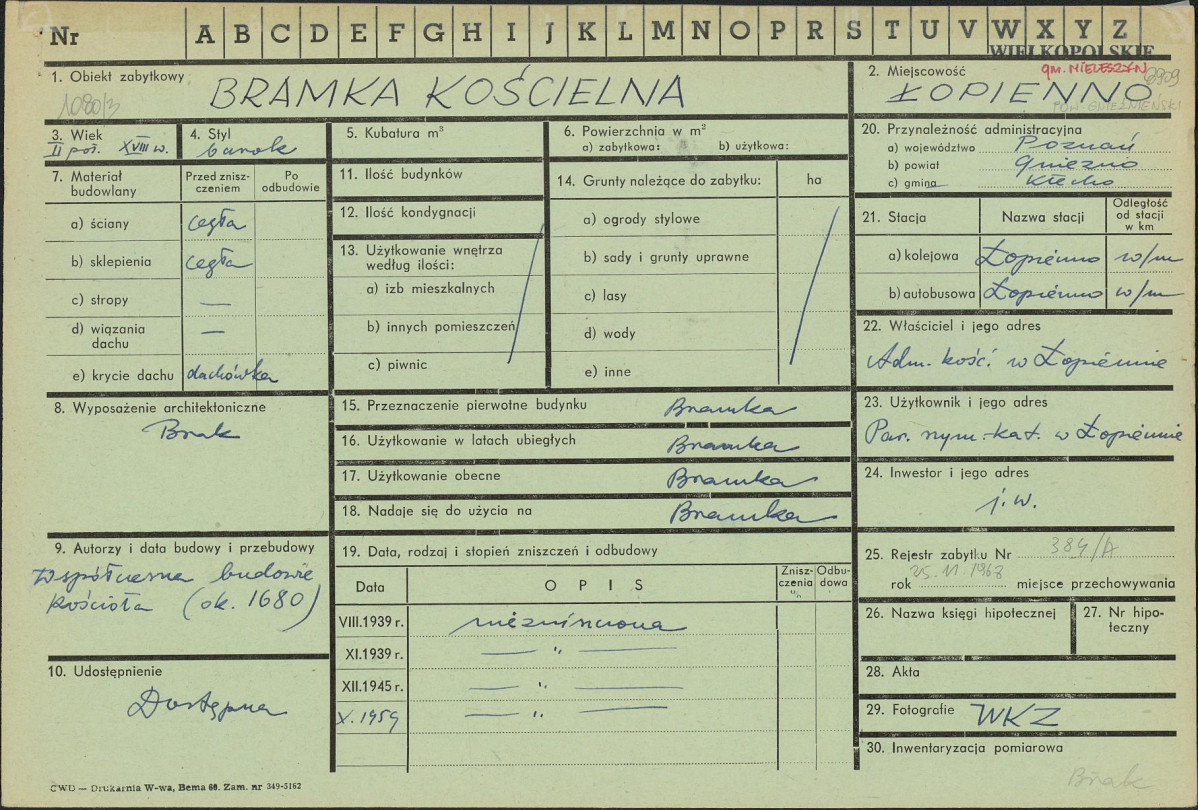 Nr A B C D E F G H I J K L M N O P R S T U V W X Y Z
WIELKOPOLSKIE
1. Obiekt zabytkowy BRAMKA KOŚCIELNA
1080/3
2. Miejscowość gm. MIELESZYN
ŁOPIENNO
POW. GNIEŹNIEŃSKI
3. Wiek II poł. XVIII w.
4. Styl barok
5. Kubatura m³
6. Powierzchnia w m²
a) zabytkowa: b) użytkowa:
20. Przynależność administracyjna
a) województwo Poznań
b) powiat Gniezno
c) gmina Kłecko
7. Materiał budowlany
Przed zniszczeniem
Po odbudowie
a) ściany cegła
b) sklepienia cegła
c) stropy —
d) wiązania dachu —
e) krycie dachu dachówka
11. Ilość budynków
12. Ilość kondygnacji
13. Użytkowanie wnętrza według ilości:
a) izb mieszkalnych
b) innych pomieszczeń
c) piwnic
14. Grunty należące do zabytku: ha
a) ogrody stylowe
b) sady i grunty uprawne
c) lasy
d) wody
e) inne
21. Stacja Nazwa stacji Odległość od stacji w km
a) kolejowa Łopienno w/m
b) autobusowa Łopienno w/m
22. Właściciel i jego adres
Adm. kość. w Łopiennie
8. Wyposażenie architektoniczne
Brak
15. Przeznaczenie pierwotne budynku Bramka
16. Użytkowanie w latach ubiegłych Bramka
17. Użytkowanie obecne Bramka
18. Nadaje się do użycia na Bramka
23. Użytkownik i jego adres
Par. rzym.-kat. w Łopiennie
24. Inwestor i jego adres
j.w.
9. Autorzy i data budowy i przebudowy
współczesna budowie
kościoła (ok. 1680)
10. Udostępnienie
Dostępna
19. Data, rodzaj i stopień zniszczeń i odbudowy
Data OPIS Zniszczenia w % Odbudowa
VIII.1939 r. niezniszczona
XI.1939 r. — " —
XII.1945 r. — " —
X. 1959 — " —
25. Rejestr zabytku Nr 384/A
rok 25.11.1968 miejsce przechowywania
26. Nazwa księgi hipotecznej
27. Nr hipoteczny
28. Akta
29. Fotografie WKZ
30. Inwentaryzacja pomiarowa
Brak
CWD — Drukarnia W-wa, Bema 60. Zam. nr 349-5162